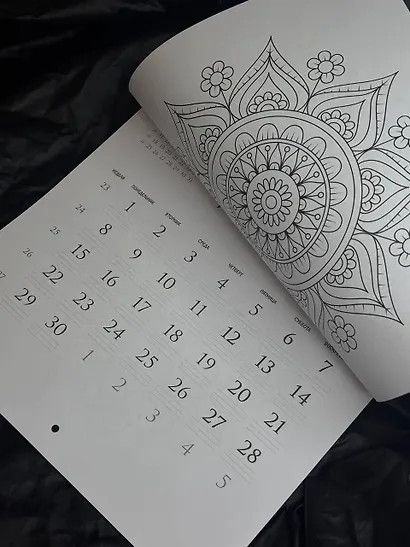 НЕДЕЛЯ ПОНЕДЕЛЬНИК ВТОРНИК СРЕДА ЧЕТВЕРГ ПЯТНИЦА СУББОТА
23 1 2 3 4 5 6 7
24 8 9 10 11 12 13 14
25 15 16 17 18 19 20 21
26 22 23 24 25 26 27 28
27 29 30 1 2 3 4 5